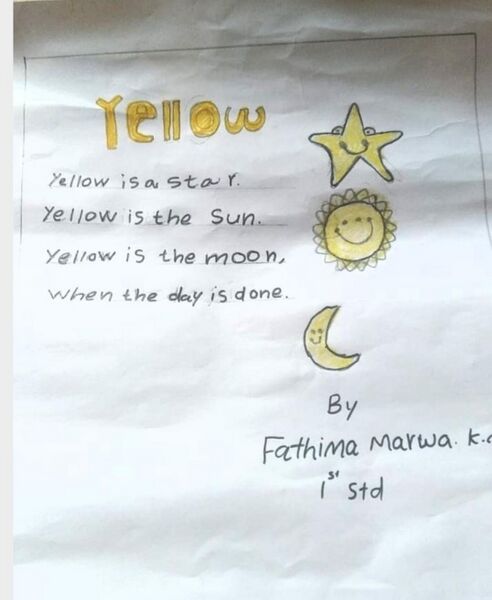 Yellow
Yellow is a star.
Yellow is the Sun.
Yellow is the moon,
When the day is done.
By
Fathima Marwa. K.
1st Std